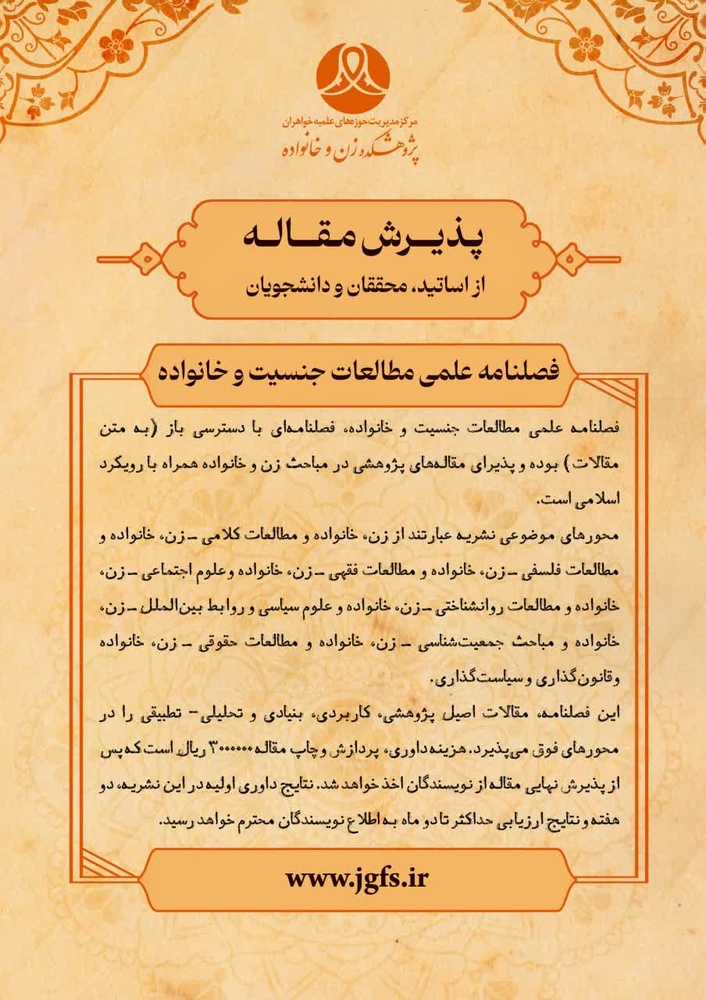 مرکز مدیریت حوزه‌های علمیه خواهران
پژوهشکده زن و خانواده
پذیرش مقاله
از اساتید، محققان و دانشجویان
فصلنامه علمی مطالعات جنسیت و خانواده
فصلنامه علمی مطالعات جنسیت و خانواده، فصلنامه‌ای با دسترسی باز (به متن
مقالات) بوده و پذیرای مقاله‌های پژوهشی در مباحث زن و خانواده همراه با رویکرد
اسلامی است.
محورهای موضوعی نشریه عبارتند از زن، خانواده و مطالعات کلامی – زن، خانواده و
مطالعات فلسفی – زن، خانواده و مطالعات فقهی – زن، خانواده وعلوم اجتماعی – زن،
خانواده و مطالعات روانشناختی – زن، خانواده و علوم سیاسی و روابط بین‌الملل – زن،
خانواده و مباحث جمعیت‌شناسی – زن، خانواده و مطالعات حقوقی – زن، خانواده
وقانون‌گذاری و سیاست‌گذاری.
این فصلنامه، مقالات اصیل پژوهشی، کاربردی، بنیادی و تحلیلی- تطبیقی را در
محورهای فوق می‌پذیرد. هزینه داوری، پردازش وچاپ مقاله ۳۰۰۰۰۰۰ ریال است که پس
از پذیرش نهایی مقاله از نویسندگان اخذ خواهد شد. نتایج داوری اولیه در این نشریه، دو
هفته و نتایج ارزیابی حداکثر تا دو ماه به اطلاع نویسندگان محترم خواهد رسید.
www.jgfs.ir